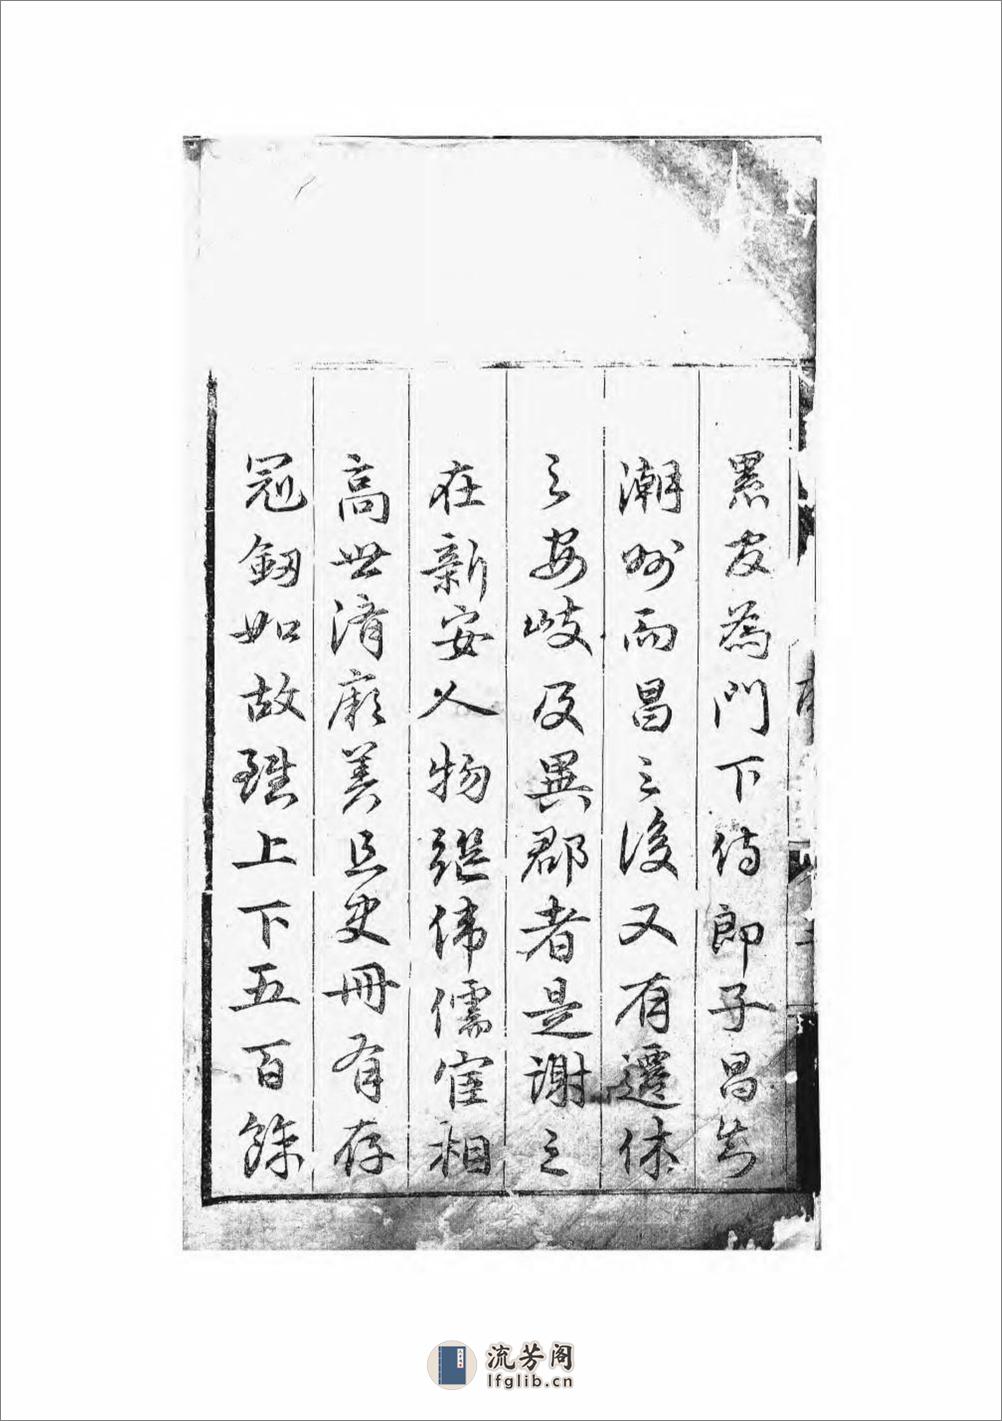 為門下侍郎子昌知
潮州而昌之後又有遷休
之安岐及異郡者是謝之
在新安人物繼偉儒宦相
高世濟厥美且史冊有存
冠劔如故雖上下五百餘
流芳阁
lfglib.cn